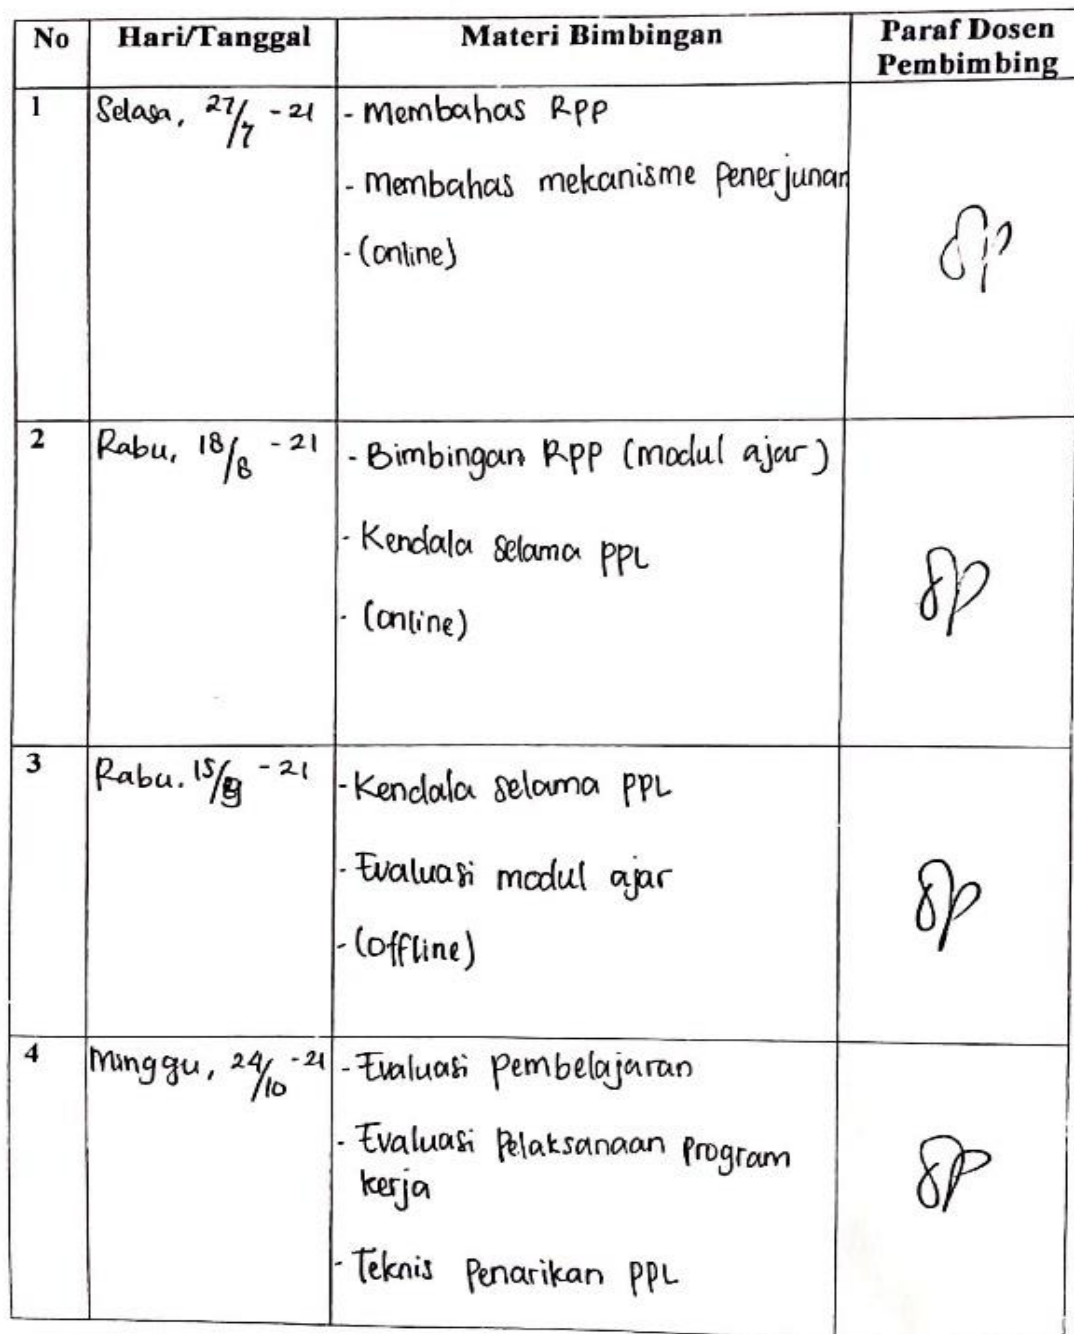 No Hari/Tanggal Materi Bimbingan Paraf Dosen
Pembimbing
1 Selasa, 27/7 - 21 - Membahas RPP
- Membahas mekanisme Penerjunan
- (online)
2 Rabu, 18/8 - 21 - Bimbingan RPP (modul ajar)
- Kendala selama PPL
- (online)
3 Rabu. 15/9 - 21 - Kendala selama PPL
- Evaluasi modul ajar
- (offline)
4 Minggu, 24/10 - 21 - Evaluasi Pembelajaran
- Evaluasi Pelaksanaan Program
kerja
- Teknis Penarikan PPL